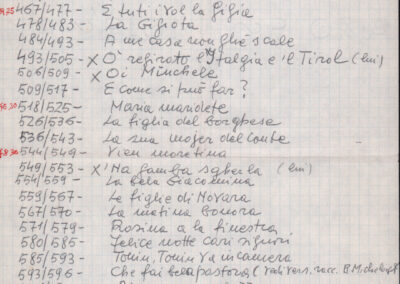 467/477 - E tuti i vol la Gigia
478/483 - La Gigiota
484/493 - A me casa non ghè scale
493/505 - x O regirato l'Italgia e 'l Tirol (lui)
506/509 - x Oi Minchele
509/517 - E come si può far?
518/525 - Maria mariolete
526/536 - La figlia del borghese
536/543 - La sua mojer del conte
544/549 - Vien moretina
549/553 - x 'Na gamba sgherla (lui)
554/559 - La bela Giacomina
559/567 - Le figlie di Novara
567/570 - La matina bonora
571/579 - Rosina a la finestra
580/585 - Felice notte cari signori
585/593 - Tonin, Tonin va in camera
593/596 - Che fai bela pastora (